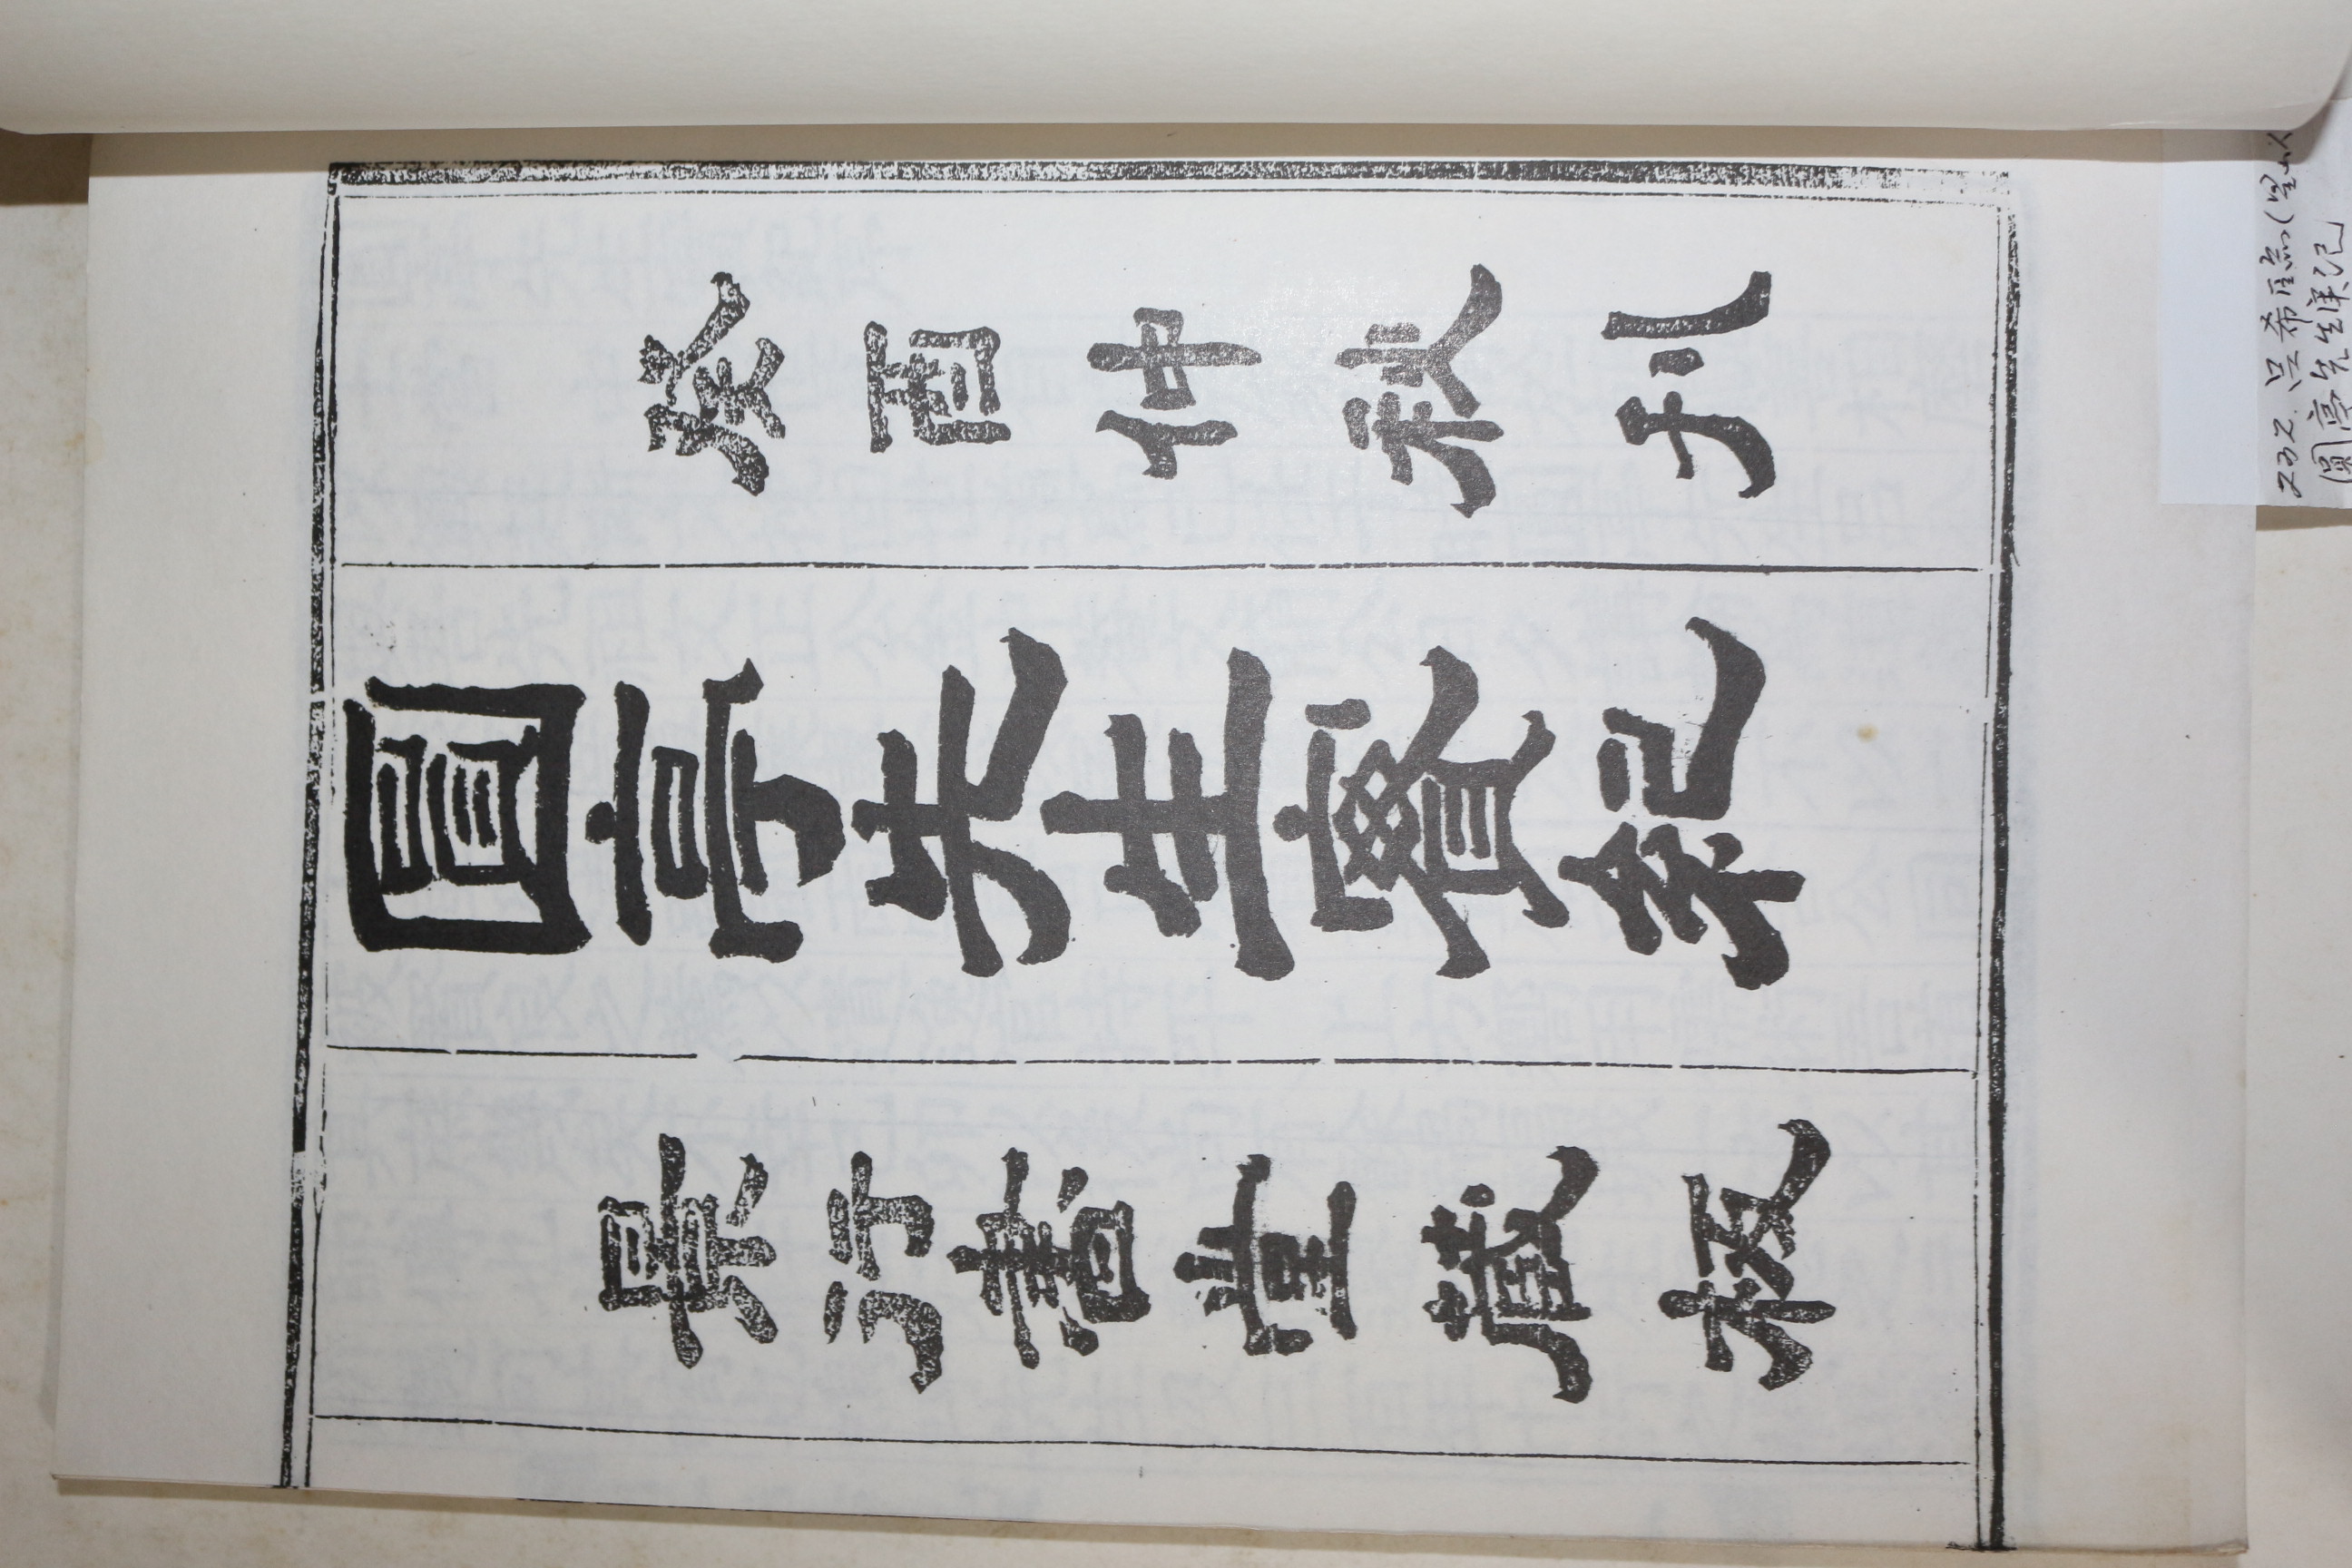 癸酉仲秋刊
圓亭先生實紀
景行書堂藏板
232. 呂希臨(星山
圓亭先生実记